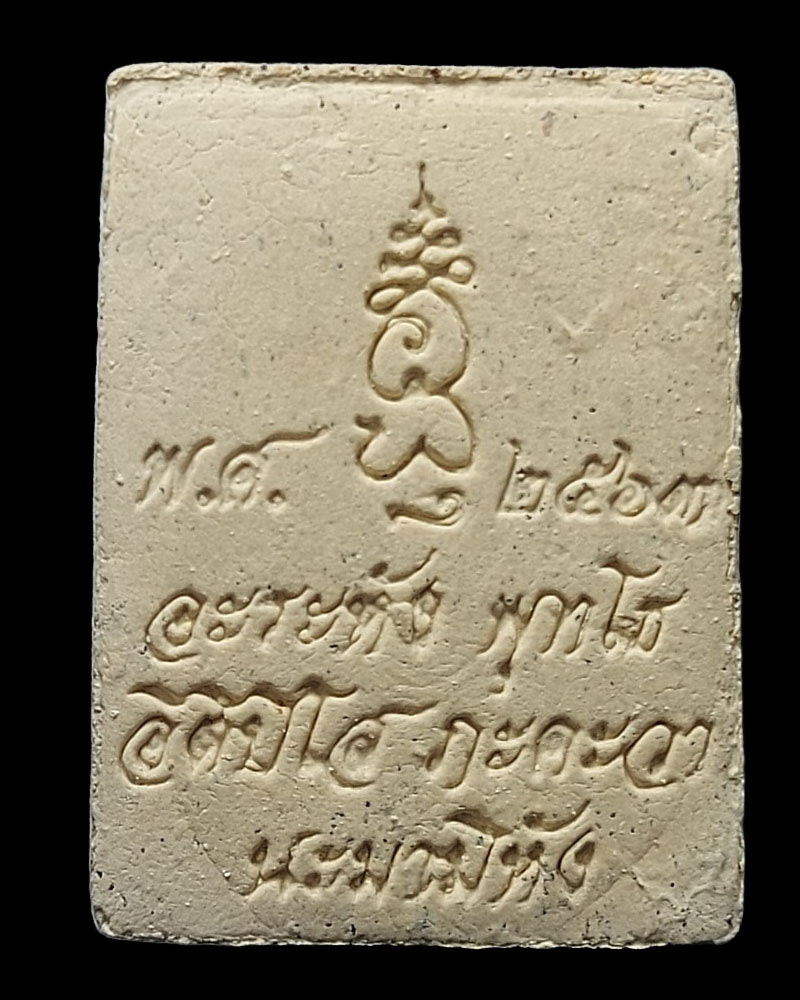 พ.ศ. ๒๕๑๓
อะระหัง พุทโธ
อิติปิโส ภะคะวา
นะมามิหัง